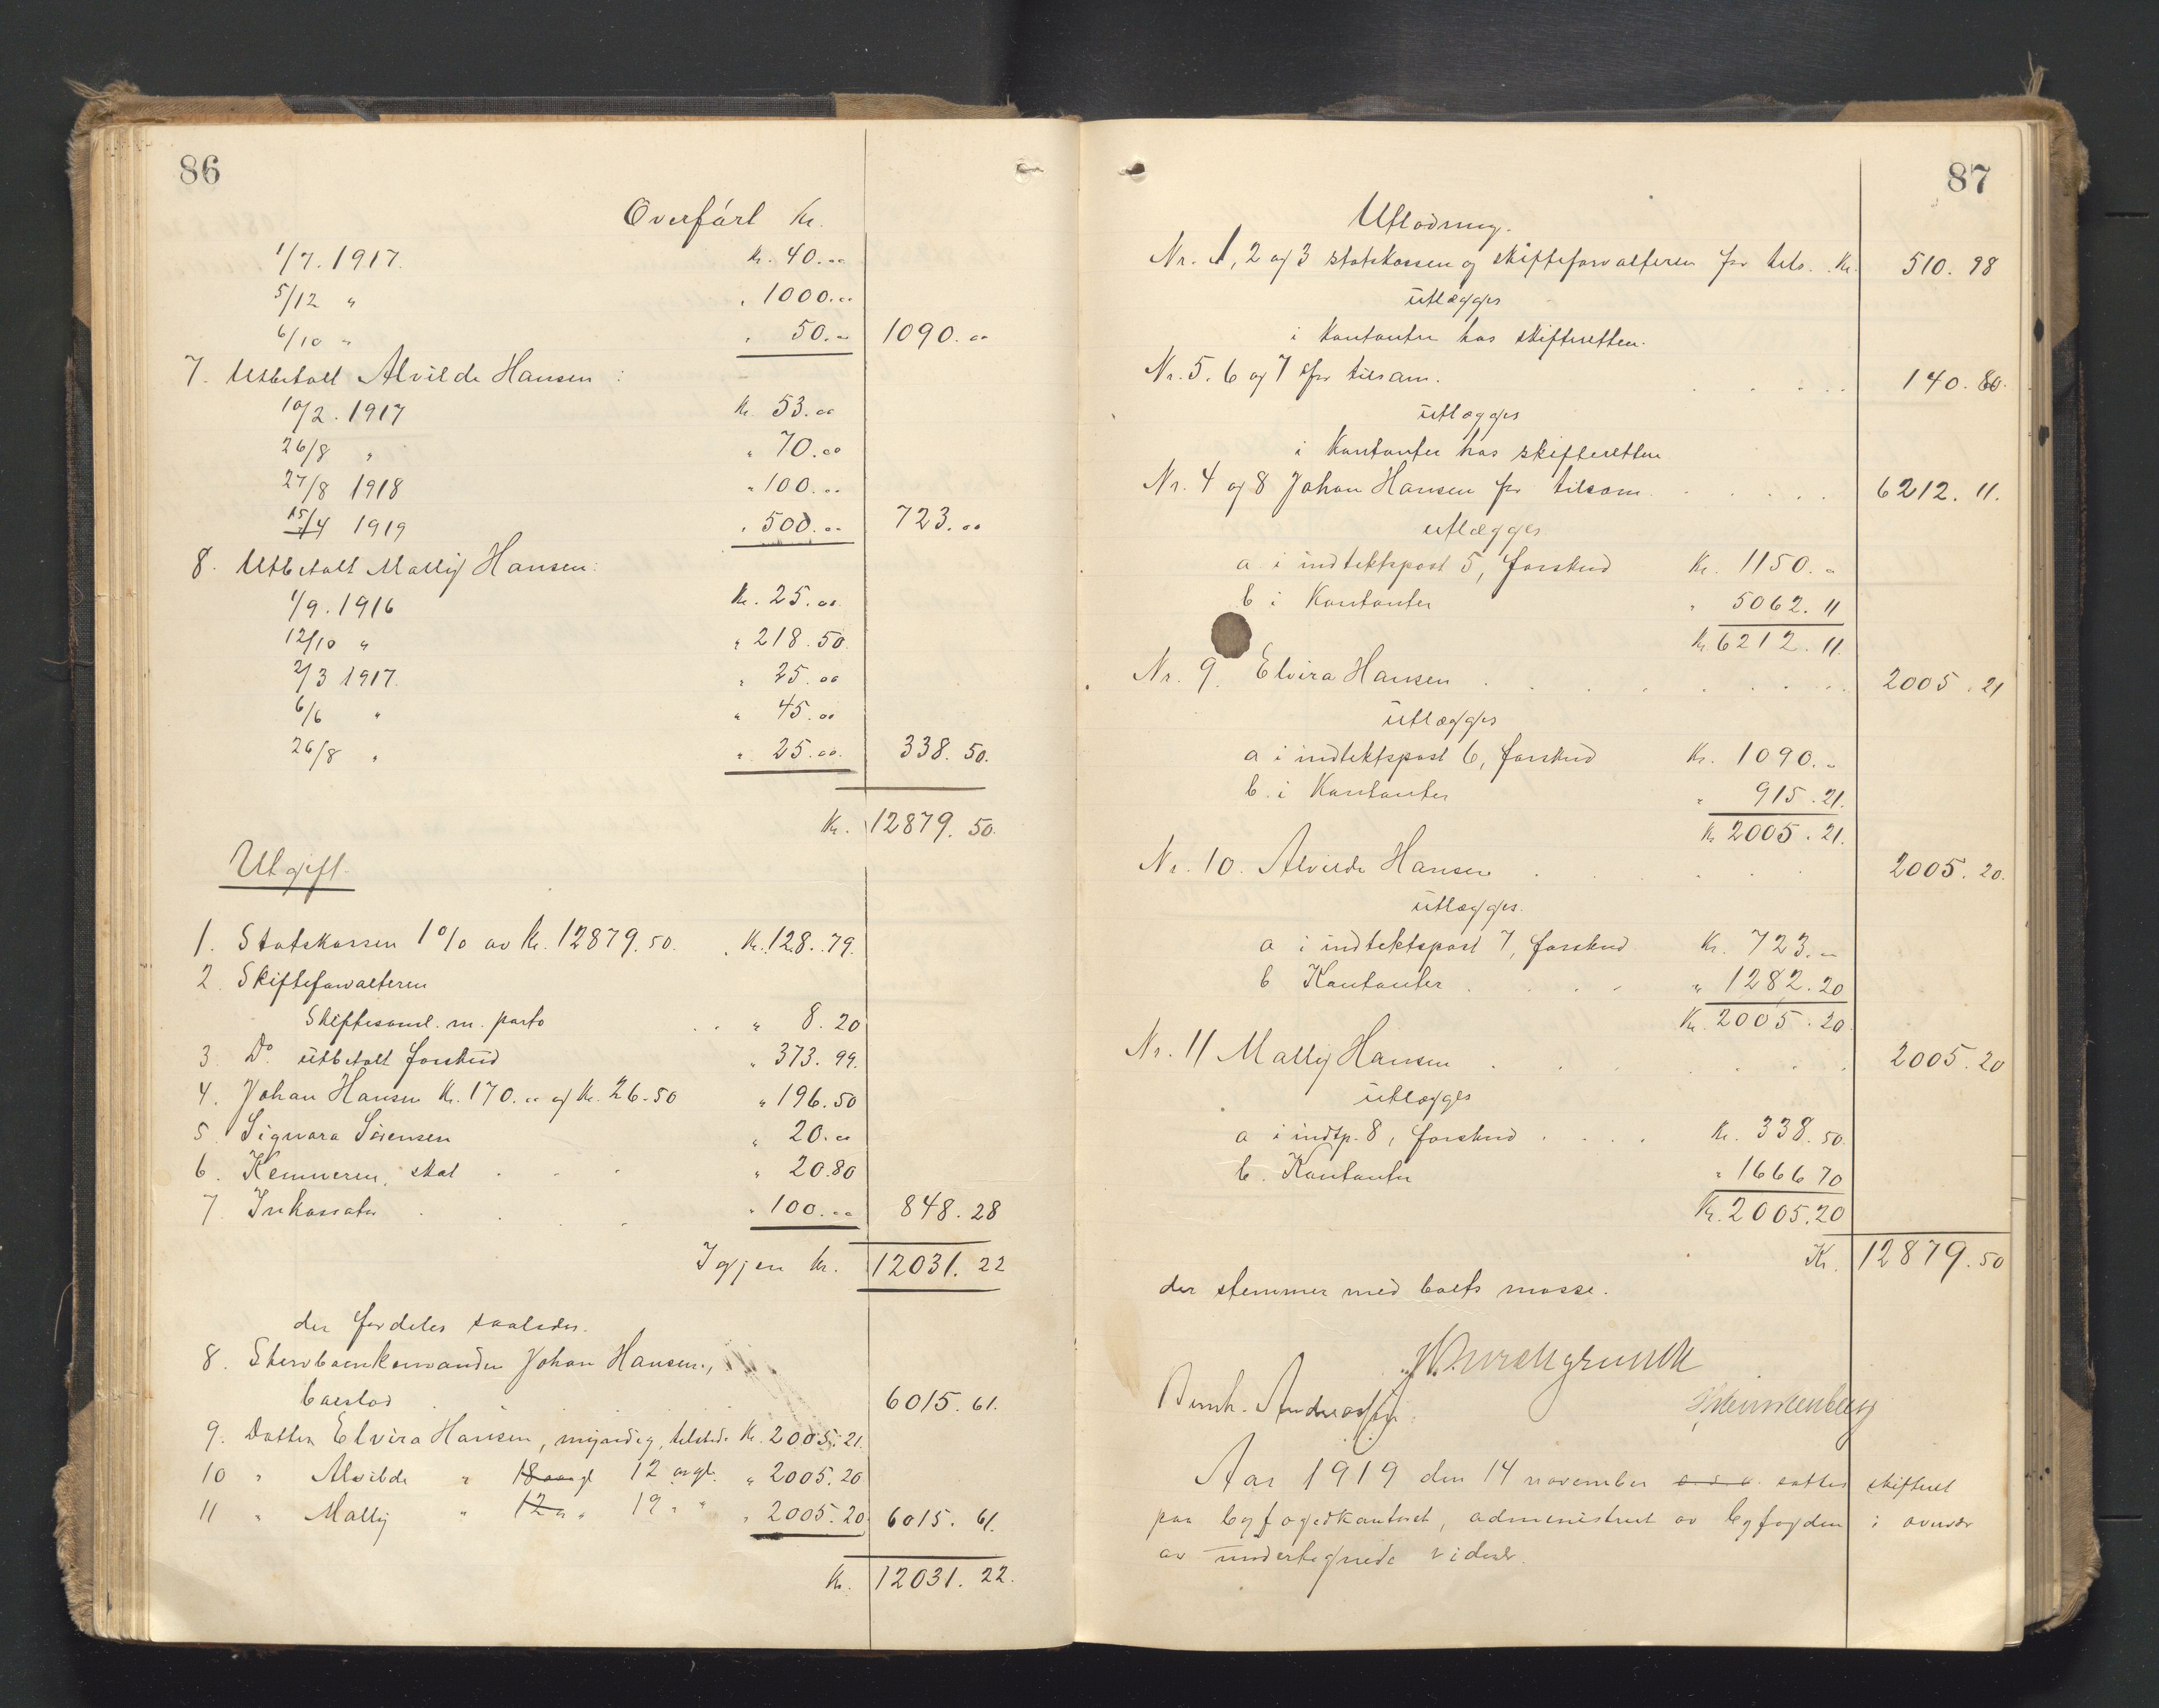 86
Overført Kr.
1/7. 1917. Kr. 40.00
5/12 " " 1000.00
6/10 " " 50.00 1090.00
7. Utbetalt Alvilde Hansen:
10/2. 1917 Kr. 53.00
26/8 " " 70.00
27/8 1918 " 100.00
15/4 1919 " 500.00 723.00
8. Utbetalt Mally Hansen:
1/9. 1916 Kr. 25.00
12/10 " " 218.50
2/3 1917. " 25.00
6/6 " " 45.00
26/8 " " 25.00. 338.50.
Kr. 12879.50.
Utgift.
1. Statskassen 1% av Kr. 12879.50. Kr. 128.79.
2. Skifteforvalteren
Skiftesaml. m. porto " 8.20
3. Do. utbetalt forskud " 373.99.
4. Johan Hansen Kr. 170.00 og Kr. 26.50 " 196.50
5. Sigvara Sørensen " 20.00
6. Kemneren, skat " 20.80
7. Inkassator " 100.00 848.28
Igjen Kr. 12031.22
der fordeles saaledes.
8. Stervboenkemanden Johan Hansen,
boeslod 6015.61.
9. Datter Elvira Hansen, myndig, tilstede Kr. 2005.21.
10 " Alvilde " 18 aargl 12 argl. " 2005.20
11 " Mally " 12 " " 19 " " " 2005.20. 6015.61.
Kr. 12031.22.
87
Utlodning.
Nr. 1, 2 og 3 statskassen og skifteforvalteren for tils. Kr. 510.98
utlægges
i Kontanter hos skifteretten.
Nr. 5, 6 og 7 for tilsam. 140.80.
utlægges
i Kontanter hos skifteretten
Nr. 4 og 8 Johan Hansen for tilsam. 6212.11.
utlægges
a i indtektspost 5, forskud Kr. 1150.-
b i Kontanter " 5062.11
Kr 6212.11.
Nr. 9. Elvira Hansen 2005.21
utlægges
a i indtektspost 6, forskud Kr. 1090.-
b. i Kontanter " 915.21.
Kr 2005.21.
Nr. 10. Alvilde Hansen 2005.20.
utlægges.
a i indtektspost 7, forskud Kr. 723.-
b Kontanter " 1282.20
Kr. 2005.20.
Nr. 11 Mally Hansen 2005.20
utlægges
a i indtp. 8, forskud Kr. 338.50.
b. Kontanter " 1666 70
Kr. 2005.20
Kr. 12879.50
der stemmer med boets masse.
Aar 1919 den 14 november o. s. v. sattes skifteret
paa byfogedkontoret, administrert av byfogden i overvær
av undertegnede vidner.